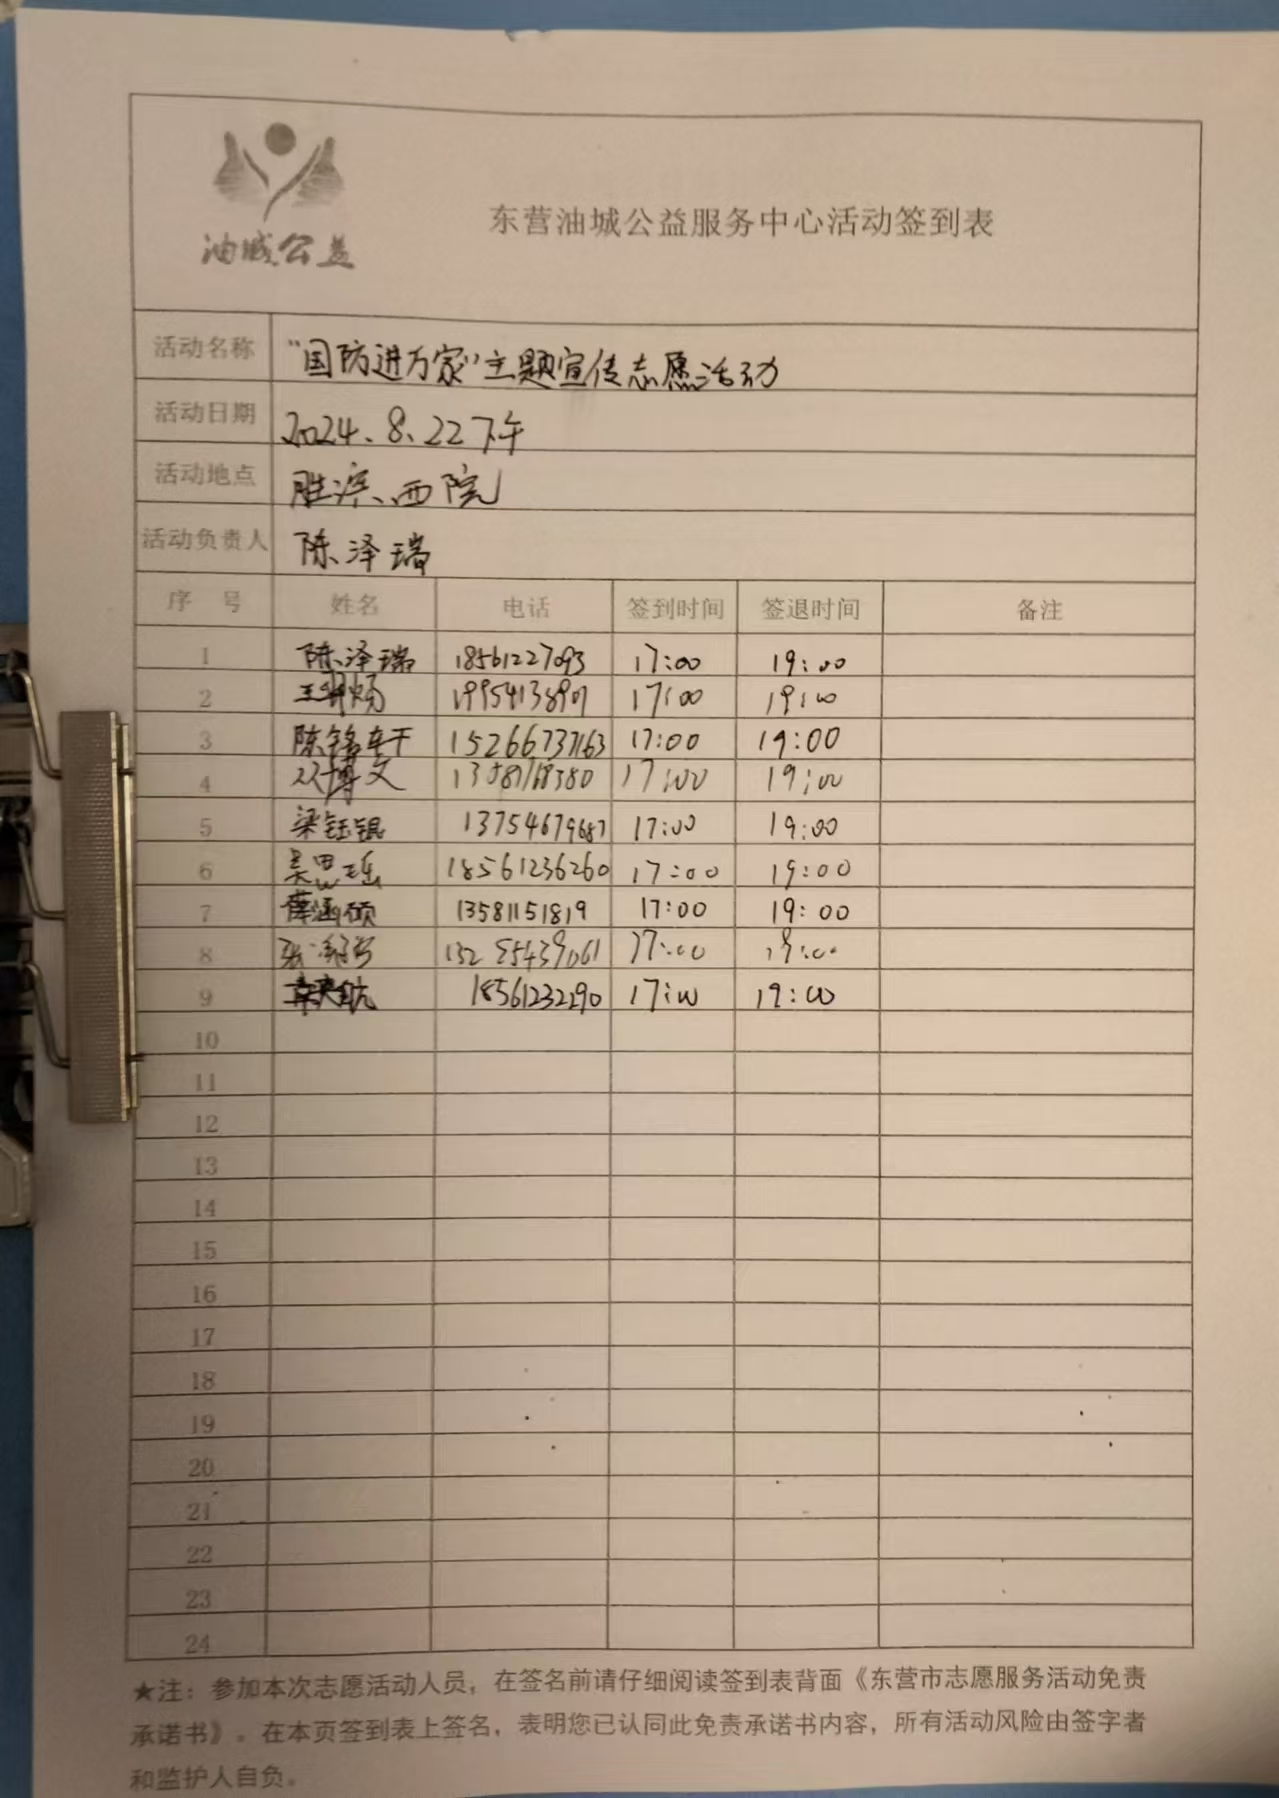 油城公益
东营油城公益服务中心活动签到表
活动名称 "国防进万家"主题宣传志愿活动
活动日期 2024.8.22下午
活动地点 胜滨西院
活动负责人 陈泽瑞
序 号 姓名 电话 签到时间 签退时间 备注
1 陈泽瑞 18561227093 17:00 19:00
2 19954138901 17:00 19:00
3 陈铭 15266737163 17:00 19:00
4 博文 17:00 19:00
5 梁钰锟 13754679687 17:00 19:00
6 吴思瑶 18561236260 17:00 19:00
7 薛涵硕 13581151819 17:00 19:00
8 张 17:00 19:00
9 航 18561232290 17:00 19:00
10
11
12
13
14
15
16
17
18
19
20
21
22
23
24
★注：参加本次志愿活动人员，在签名前请仔细阅读签到表背面《东营市志愿服务活动免责
承诺书》。在本页签到表上签名，表明您已认同此免责承诺书内容，所有活动风险由签字者
和监护人自负。